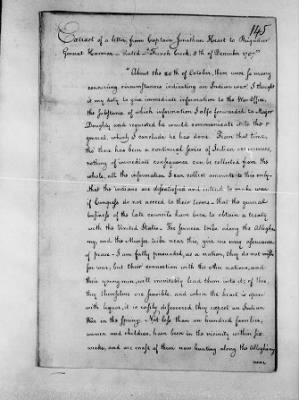 145
Extract of a letter from Captain Jonathan Heart to Brigadier
General Harmar — dated — "French Creek, 8th of December 1787."
"About the 20th of October, there were so many
concurring circumstances indicating an Indian war, I thought
it my duty to give immediate information to the War Office,
the substance of which information I also forwarded to Major
Doughty and requested he would communicate it to the
general, which I conclude he has done. From that time,
tho there has been a continual series of Indian occurrences,
nothing of immediate consequence can be collected from the
whole, all the information I can collect amounts to this only.
That the indians are dissatisfied and intend to make war
if Congress do not accede to their terms — that the general
business of the late councils have been to obtain a treaty
with the United States. The Seneca tribe along the Allegha
ny, and the Munsee tribe near this, give me every assurance
of peace. I am fully persuaded, as a nation, they do not wish
for war, but their connection with the other nations, and
their young men, will inevitably lead them into it; of this,
they themselves are sensible, and when the heart is open
with liquor, it is easily discovered they expect an Indian
War in the Spring. Not less than an hundred families,
women and children, have been in the vicinity within six
weeks, and are most of them now hunting along the Alleghany
near